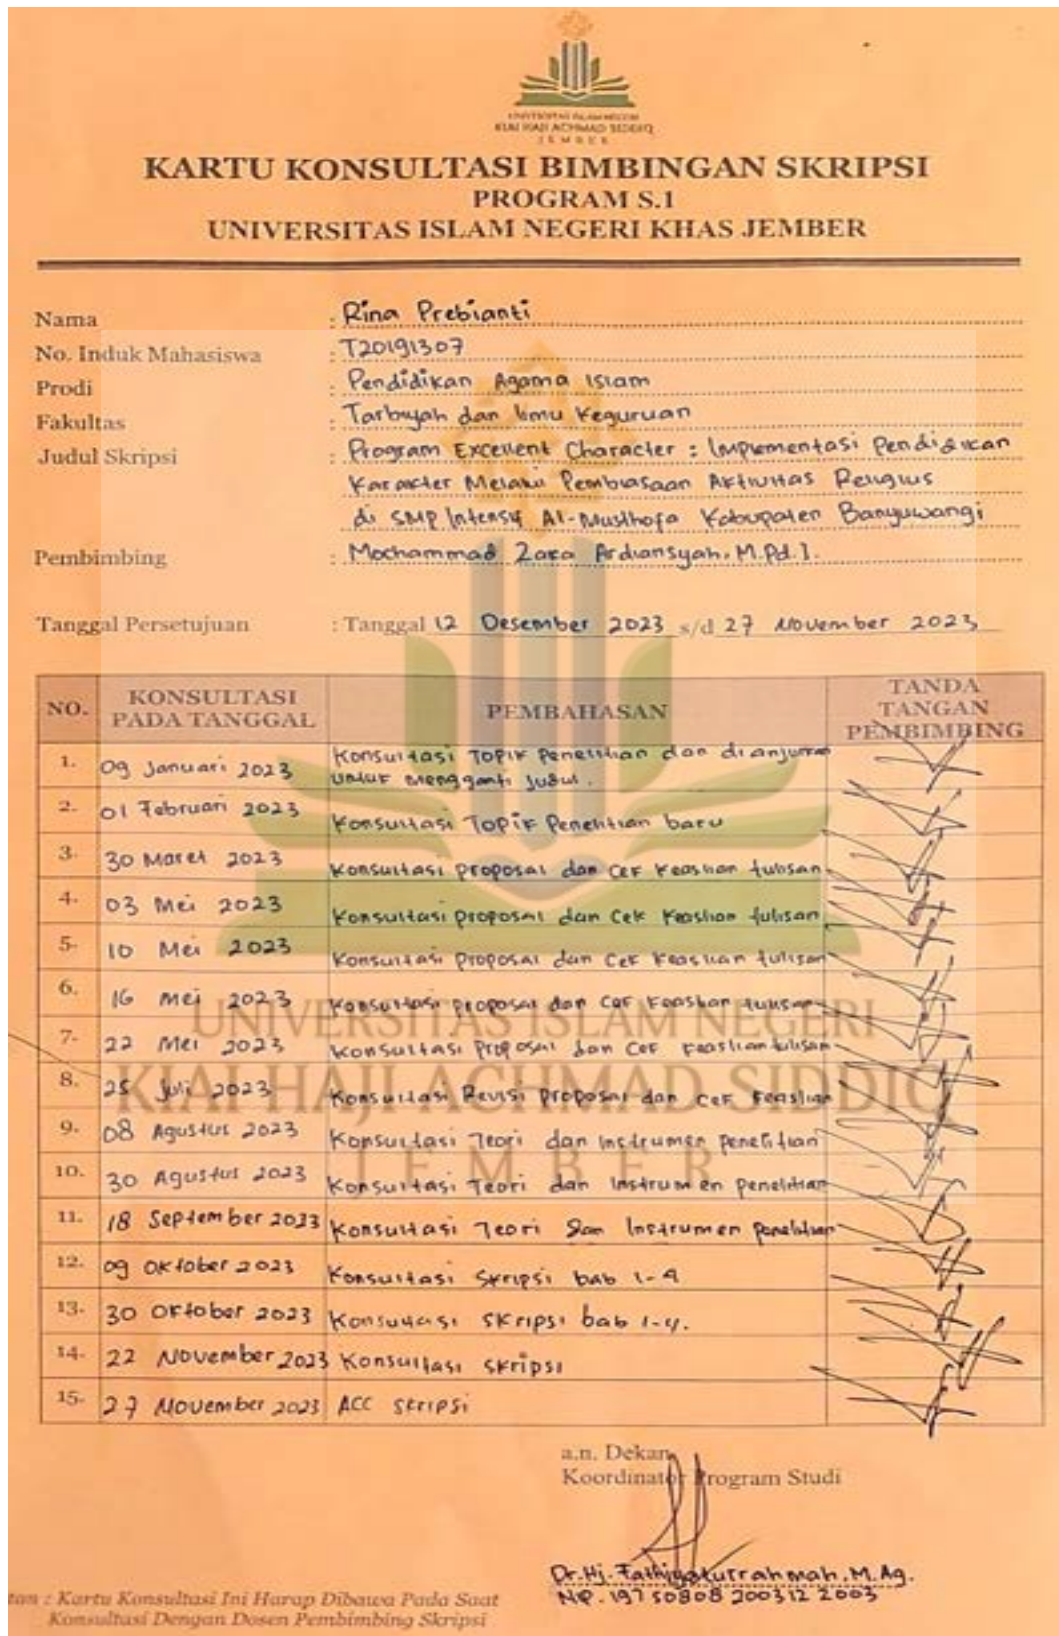 UNIVERSITAS ISLAM NEGERI
KIAI HAJI ACHMAD SIDDIQ
JEMBER
KARTU KONSULTASI BIMBINGAN SKRIPSI
PROGRAM S.1
UNIVERSITAS ISLAM NEGERI KHAS JEMBER
Nama : Rina Prebianti
No. Induk Mahasiswa : T20191307
Prodi : Pendidikan Agama Islam
Fakultas : Tarbiyah dan Ilmu Keguruan
Judul Skripsi : Program Excellent Character : Implementasi Pendidikan
Karakter Melalui Pembiasaan Aktivitas Religius
di SMP Intensif Al-Musthofa Kabupaten Banyuwangi
Pembimbing : Mochammad Zaka Ardiansyah, M.Pd.I.
Tanggal Persetujuan : Tanggal 12 Desember 2023 s/d 27 November 2023
NO. KONSULTASI PADA TANGGAL PEMBAHASAN TANDA TANGAN PEMBIMBING
1. 09 Januari 2023 Konsultasi Topik Penelitian dan dianjurkan
untuk mengganti judul.
2. 01 Februari 2023 Konsultasi Topik Penelitian baru
3. 30 Maret 2023 Konsultasi proposal dan Cek Keaslian tulisan
4. 03 Mei 2023 Konsultasi proposal dan Cek Keaslian tulisan
5. 10 Mei 2023 Konsultasi proposal dan Cek Keaslian tulisan
6. 16 Mei 2023 Konsultasi proposal dan Cek Keaslian tulisan
7. 22 Mei 2023 Konsultasi Proposal dan Cek Keaslian tulisan
8. 25 Juli 2023 Konsultasi Revisi proposal dan cek keaslian
9. 08 Agustus 2023 Konsultasi Teori dan instrumen penelitian
10. 30 Agustus 2023 Konsultasi Teori dan Instrumen penelitian
11. 18 September 2023 Konsultasi Teori dan Instrumen penelitian
12. 09 Oktober 2023 Konsultasi Skripsi bab 1-4
13. 30 Oktober 2023 Konsultasi Skripsi bab 1-4.
14. 22 November 2023 Konsultasi skripsi
15. 27 November 2023 ACC skripsi
UNIVERSITAS ISLAM NEGERI
KIAI HAJI ACHMAD SIDDIQ
JEMBER
a.n. Dekan
Koordinator Program Studi
Dr. Hj. Fathiyaturrahmah, M.Ag.
NIP. 19750808 200312 2003
tan : Kartu Konsultasi Ini Harap Dibawa Pada Saat
Konsultasi Dengan Dosen Pembimbing Skripsi